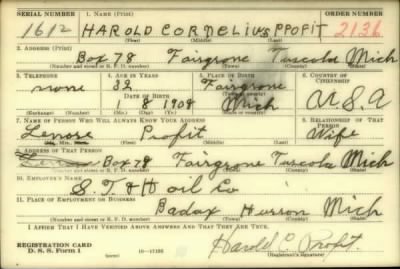 SERIAL NUMBER 1. NAME (Print) ORDER NUMBER
1612 HAROLD CORDELIUS PROFIT 2136
(First) (Middle) (Last)
2. ADDRESS (Print)
Box 78 Fairgrove Tuscola Mich
(Number and street or R. F. D. number) (Town) (County) (State)
3. TELEPHONE 4. AGE IN YEARS 5. PLACE OF BIRTH 6. COUNTRY OF CITIZENSHIP
none 32 Fairgrove
DATE OF BIRTH (Town or county)
1 8 1908 Mich U.S.A
(Exchange) (Number) (Mo.) (Day) (Yr.) (State or country)
7. NAME OF PERSON WHO WILL ALWAYS KNOW YOUR ADDRESS 8. RELATIONSHIP OF THAT PERSON
Lenore Profit Wife
(Mr., Mrs., Miss) (First) (Middle) (Last)
9. ADDRESS OF THAT PERSON
Box 78 Fairgrove Tuscola Mich
(Number and street or R. F. D. number) (Town) (County) (State)
10. EMPLOYER'S NAME
S. T. & H oil Co
11. PLACE OF EMPLOYMENT OR BUSINESS
Badax Huron Mich
(Number and street or R. F. D. number) (Town) (County) (State)
I AFFIRM THAT I HAVE VERIFIED ABOVE ANSWERS AND THAT THEY ARE TRUE.
REGISTRATION CARD
D. S. S. Form 1 16—17105 Harold C. Profit
(Registrant's signature)